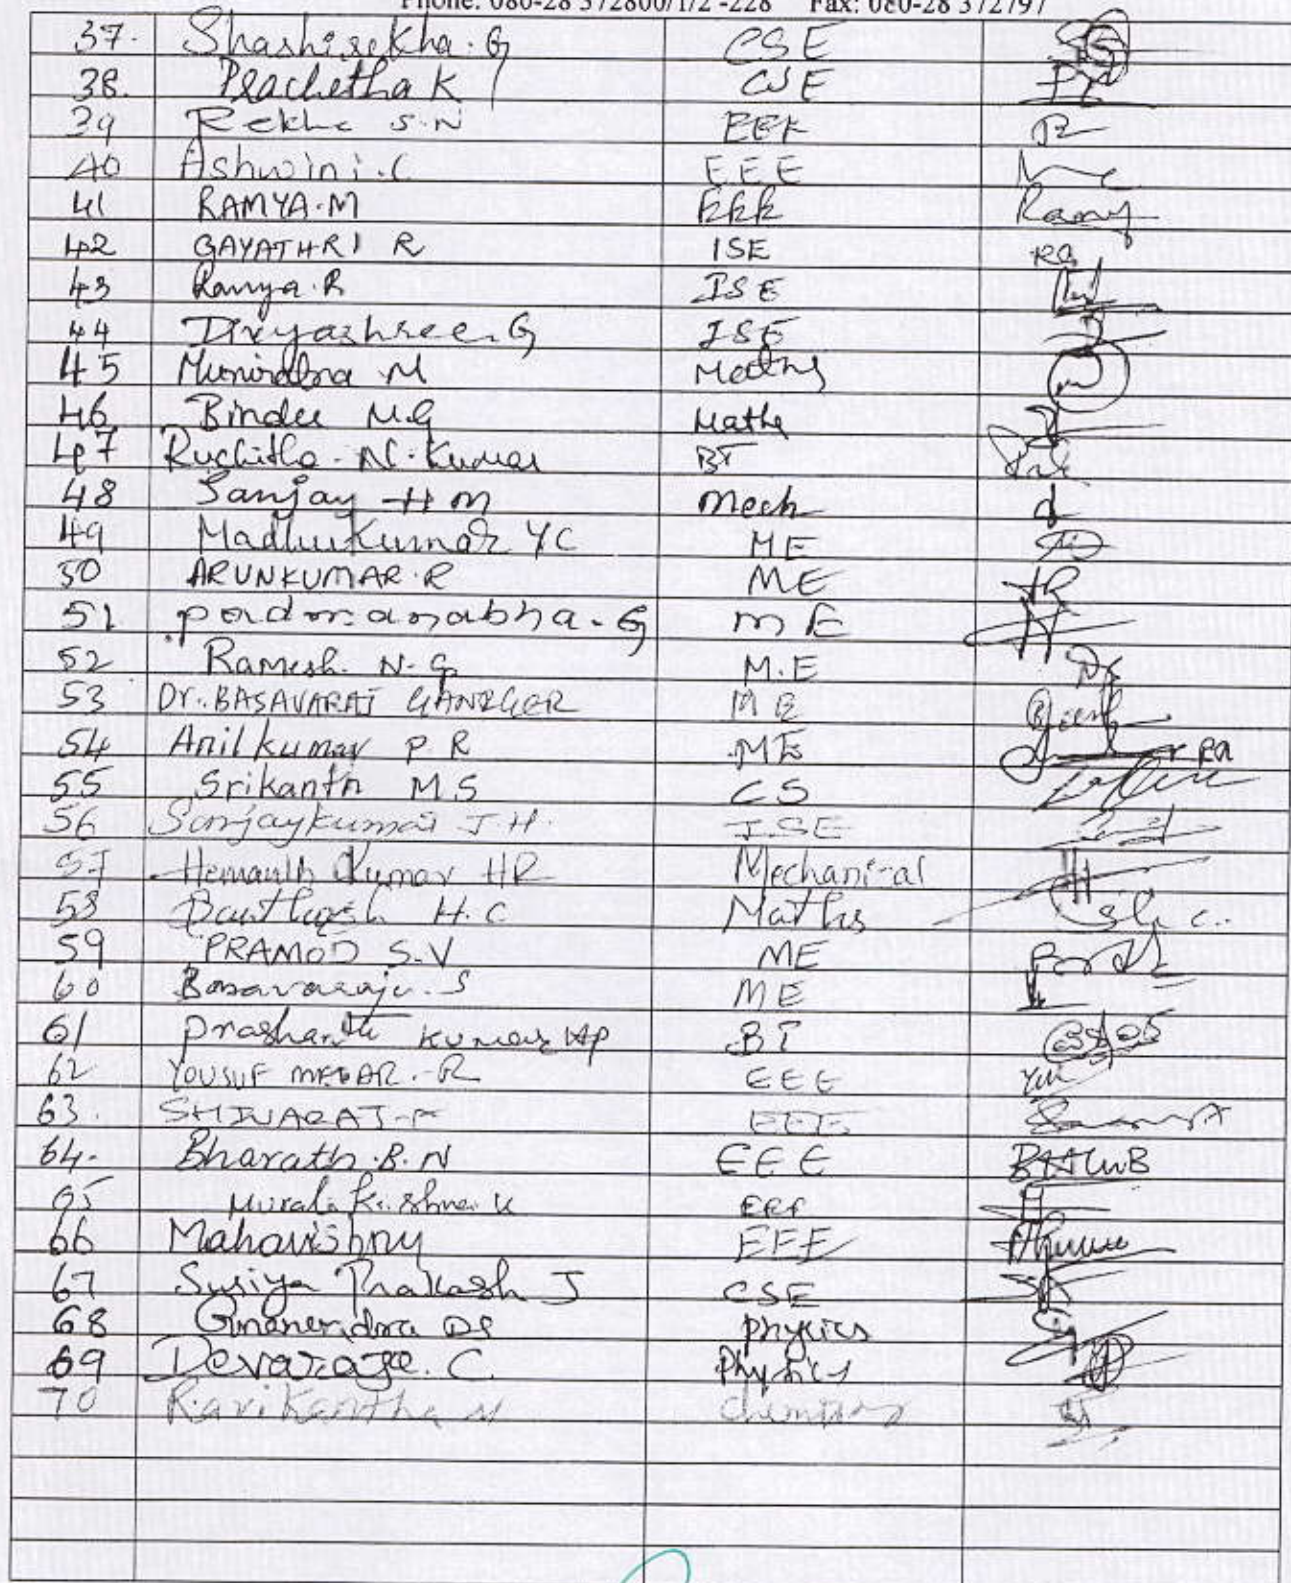 Phone: 080-28 372800/1/2 -228 Fax: 080-28 372797
37. Shashisekha. G CSE
38. Prachetha K CSE
39 Rekha S.N EEE
40 Ashwini.C EEE
41 RAMYA.M EEE Ramy
42 GAYATHRI R ISE RG
43 Ramya.R ISE
44 Divyashree.G ISE
45 Munirabna M Maths
46 Bindu M.G Maths
47 Ruchitha. N. Kumar BT
48 Sanjay H M Mech
49 Madhukumar YC ME
50 ARUNKUMAR.R ME AR
51 padmanabha. G ME
52 Ramesh. N.G M.E
53 Dr. BASAVARAJ ME
54 Anilkumar P.R ME
55 Srikanth M.S CS
56 Sanjaykumar J.H. ISE
57 Hemanth Kumar HR Mechanical
58 H.C Maths
59 PRAMOD S.V ME
60 Basavaraju. S ME
61 Prashanth Kumar HP BT
62 YOUSUF MEDAR. R EEE
63. SHIVARAJ EEE
64. Bharath.B.N EEE
65 Murali Krishna K EEE
66 Mahavishny EEE
67 Suriya Prakash J CSE
68 Gnanendra DS physics
69 Devaraje. C Physics
70 Ravikantha N